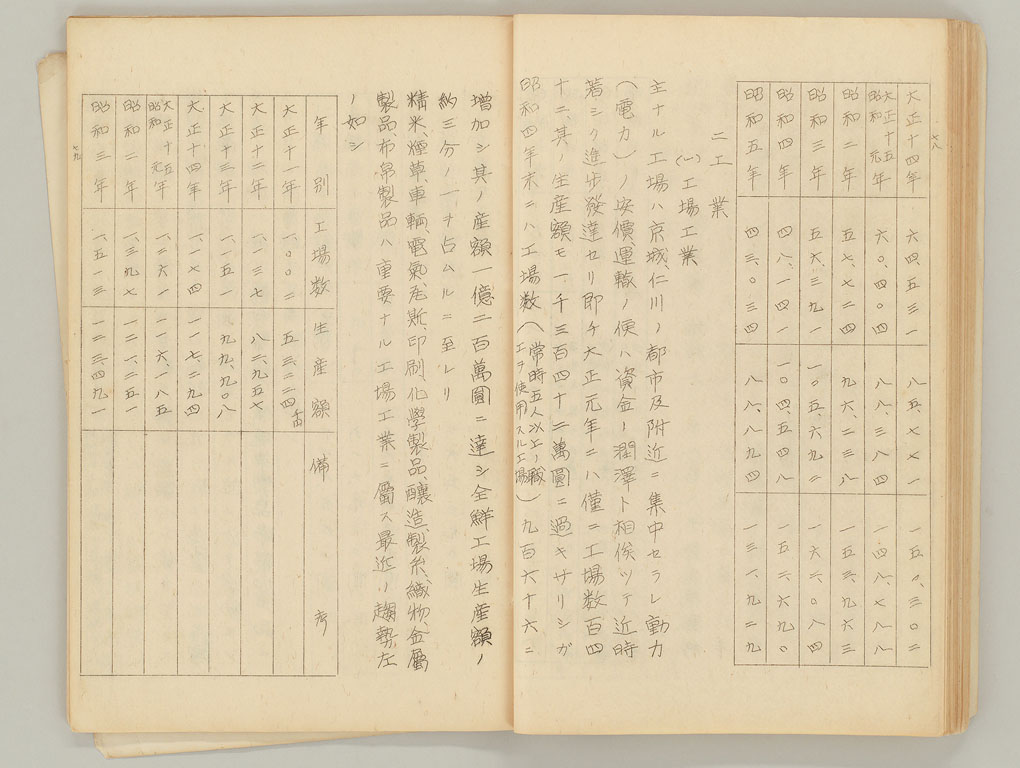 七八
大正十四年 六四、五三一 八五、七七一 一五〇、三〇二
大正十五昭和元年 六〇、四〇四 八八、三八四 一四八、七八八
昭和二年 五七、七二四 九六、二三八 一五三、九六三
昭和三年 五六、三九一 一〇五、六九二 一六二、〇八四
昭和四年 四八、一四一 一〇四、五四八 一五二、六九〇
昭和五年 四三、〇三四 八八、八九四 一三一、九二九
二工業
(一)工場工業
主ナル工場ハ京城、仁川ノ都市及附近ニ集中セラレ動力
(電力)ノ安價、運輸ノ便ハ資金ノ潤澤ト相俟ツテ近時
著シク進歩發達セリ即チ大正元年ニハ僅ニ工場数百四
十二、其ノ生産額モ一、千三百四十二萬圓ニ過キサリシガ
昭和四年末ニハ工場数(常時五人以上ノ職工ヲ使用スル工場)九百六十六ニ
増加シ其ノ産額一億二百萬圓ニ達シ全鮮工場生産額ノ
約三分ノ一ヲ占ムルニ至レリ
精米、煙草、車輌、電氣、瓦斯、印刷、化學製品、釀造、製糸、織物、金屬
製品、布帛製品ハ重要ナル工場工業ニ屬ス最近ノ趨勢左
ノ如シ
年別 工場数 生産額 備考
大正十一年 一、〇〇二 五三、二二四千円
大正十二年 一、一三七 八二、九五七
大正十三年 一、一五一 九九、九〇八
大正十四年 一、一七四 一一七、二九四
大正十五昭和元年 一、二六一 一一六、一八五
昭和二年 一、三九七 一二一、二五一
昭和三年 一、五一三 一二三、四九一
七九